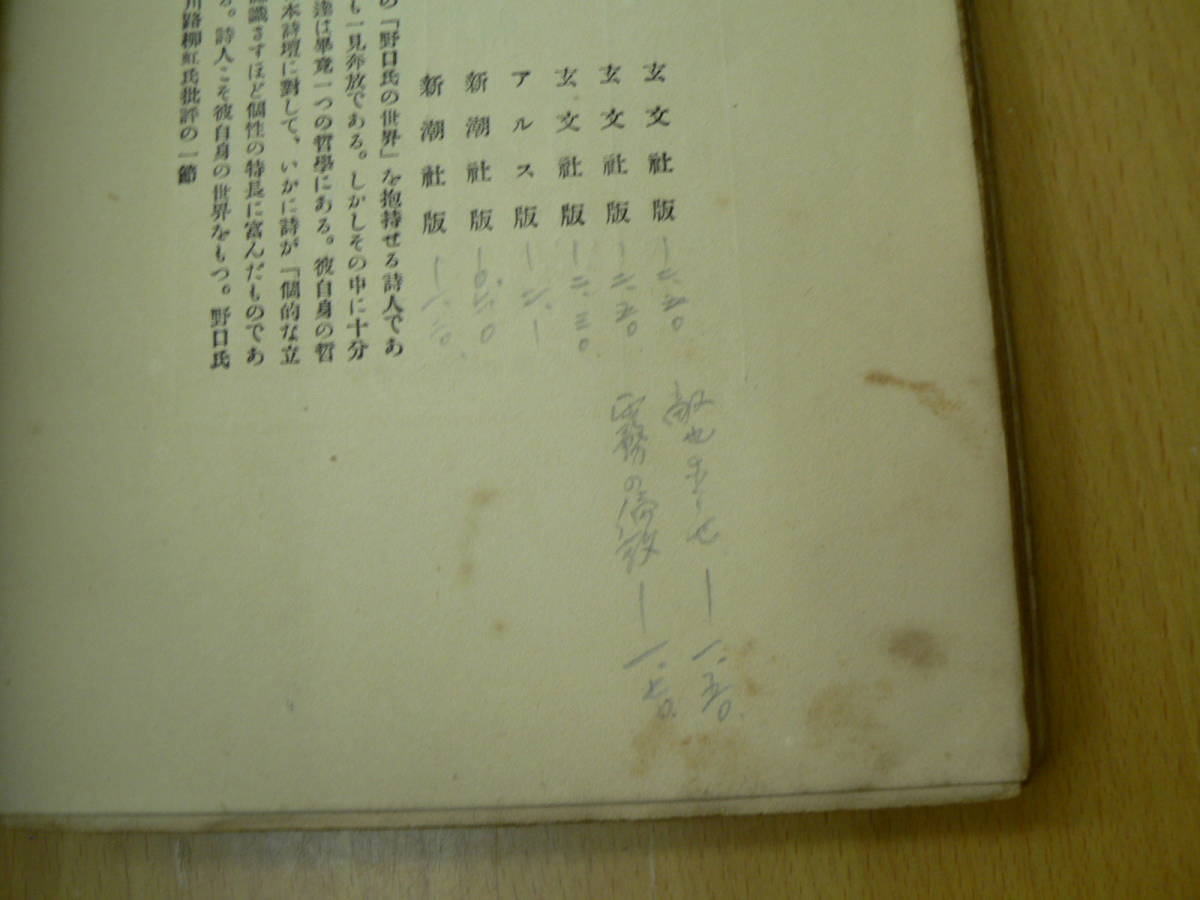 玄文社版 一二.五〇
玄文社版 一二.五〇
玄文社版 一二.三〇.
アルス版
新潮社版
新潮社版
の「野口氏の世界」を抱持せる詩人であ
も一見奔放である。しかしその中に十分
達は畢竟一つの哲學にある。彼自身の哲
本詩壇に對して、いかに詩が「個的な立
識さすほど個性の特長に富んだものであ
る。詩人こそ彼自身の世界をもつ。野口氏
川路柳虹氏批評の一節
一.五〇.
の 一.七〇.